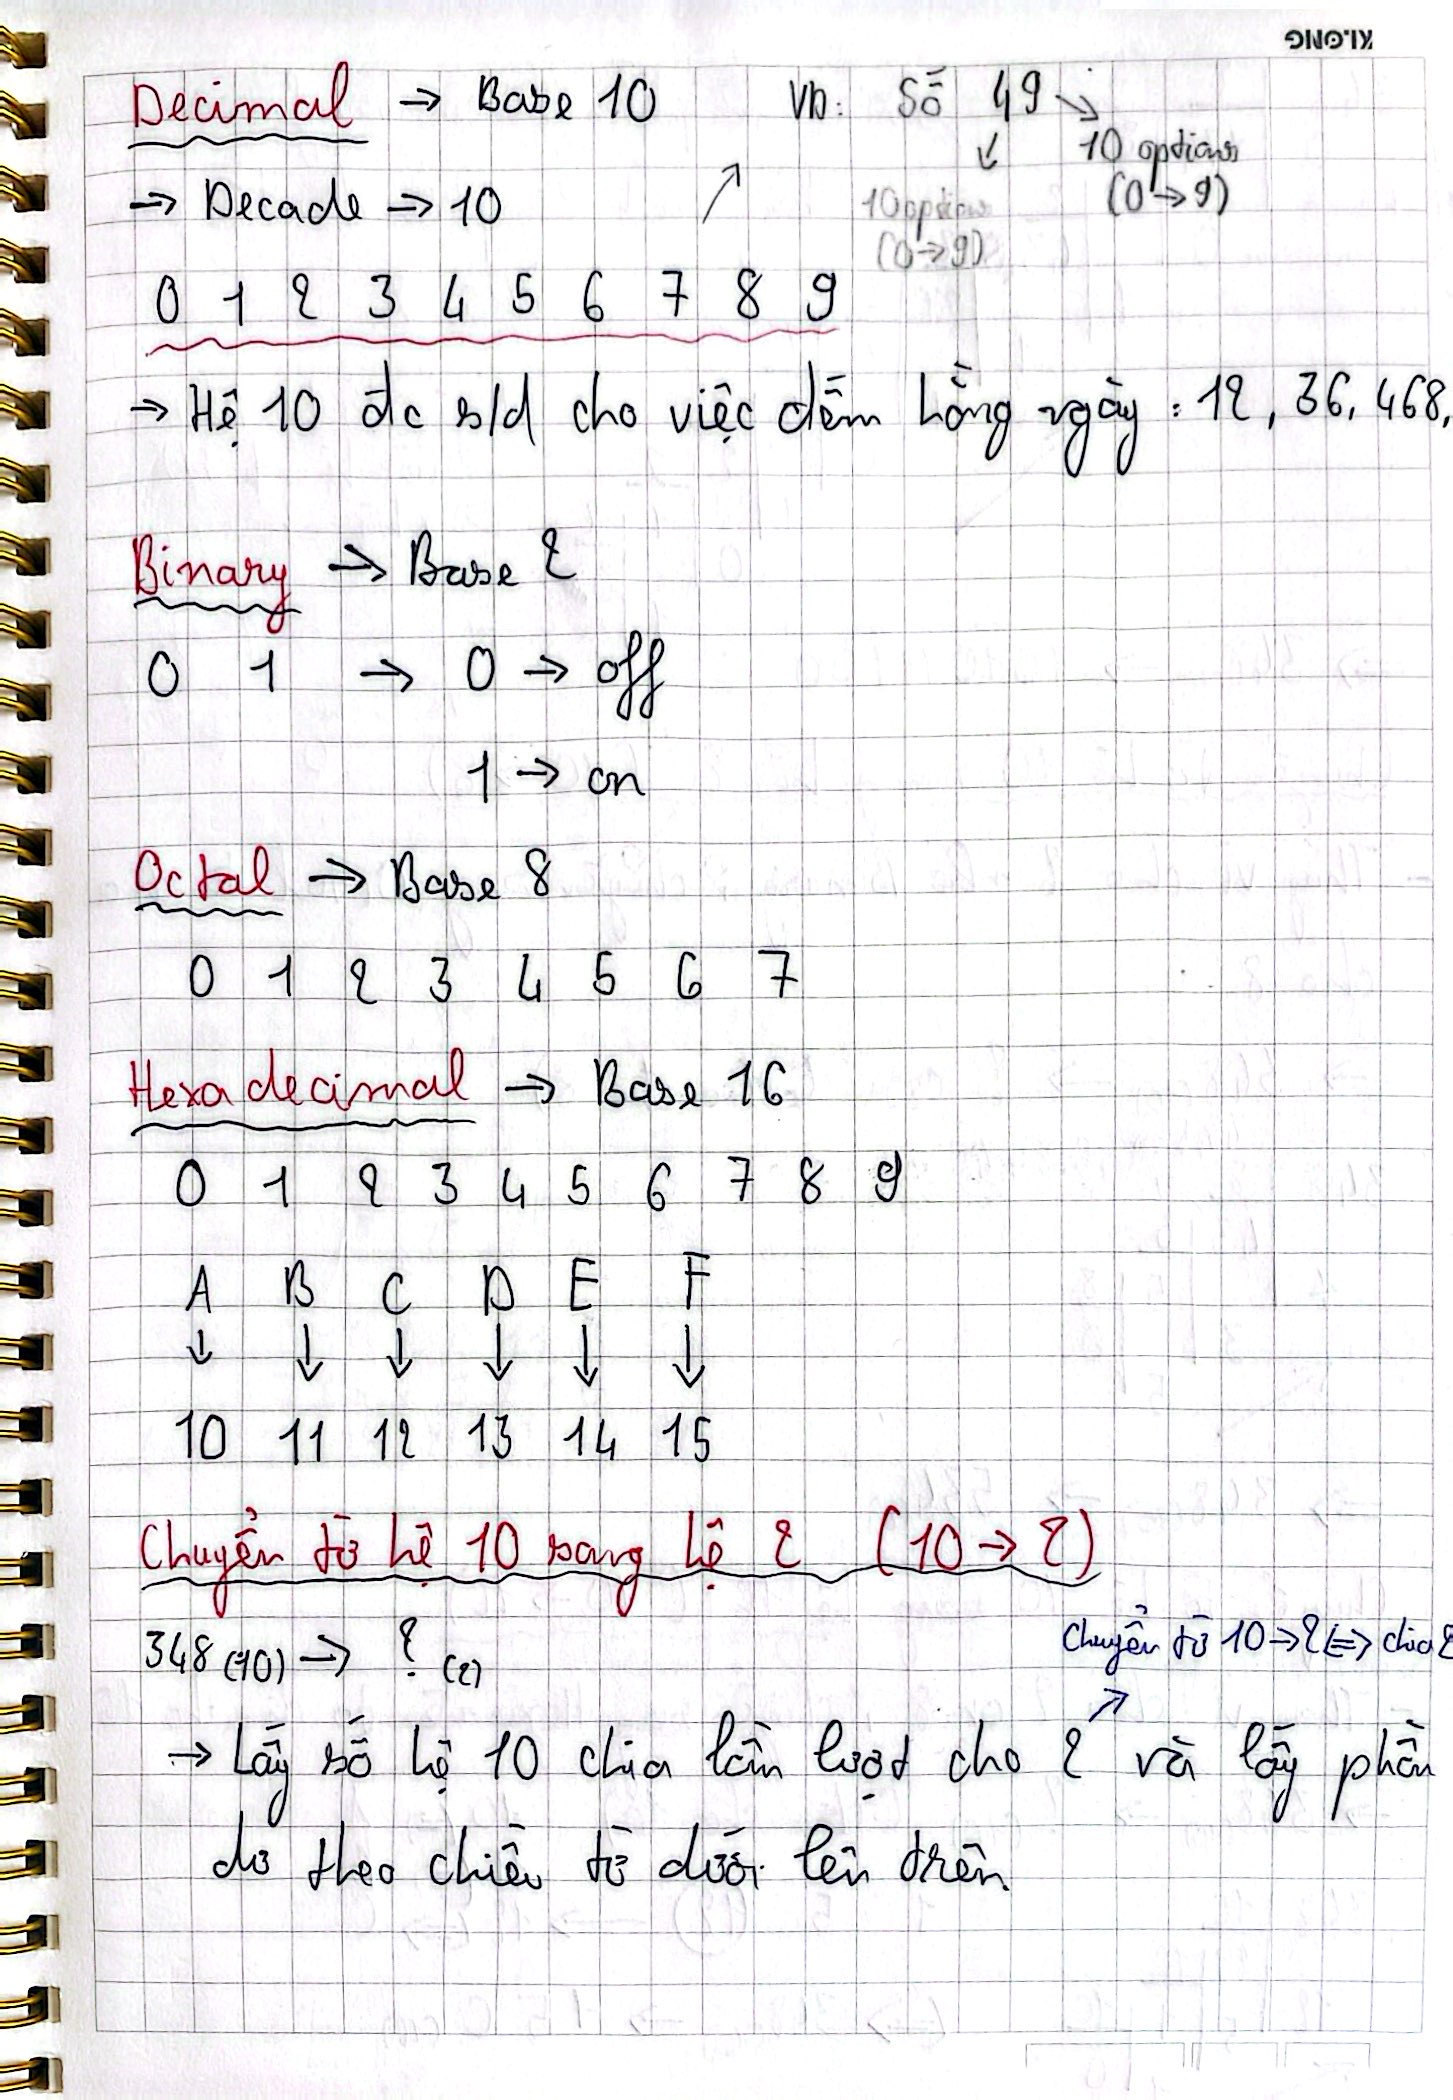 KLONG
Decimal → Base 10 VD: Số 49
→ Decade → 10
10 options (0→9)
10 options (0→9)
0 1 2 3 4 5 6 7 8 9
→ Hệ 10 đc s/d cho việc đếm hằng ngày: 12, 36, 468,
Binary → Base 2
0 1 → 0 → off
1 → on
Octal → Base 8
0 1 2 3 4 5 6 7
Hexadecimal → Base 16
0 1 2 3 4 5 6 7 8 9
A B C D E F
↓ ↓ ↓ ↓ ↓ ↓
10 11 12 13 14 15
Chuyển từ hệ 10 sang hệ 2 (10 → 2)
348 (10) → ? (2)
Chuyển từ 10→2 <=> chia 2
→ Lấy số hệ 10 chia lần lượt cho 2 và lấy phần
dư theo chiều từ dưới lên trên.